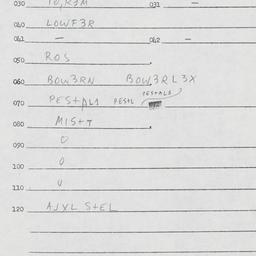 030 TO,R3M 031 —
040 LOWF3R
041 — 042 —
050 ROS
060 BOW3RN BOW3RL3X
PESTALS
070 PESTALS PESTL
080 MIST7
090 0
100 0
110 0
120 AJXL STEL